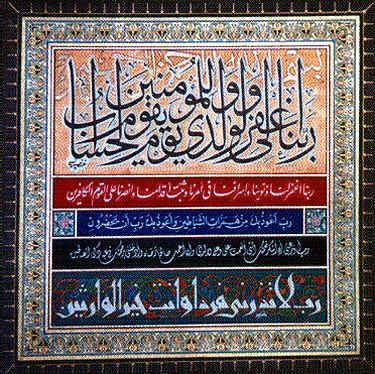 ربنا اغفر لي ولوالدي وللمؤمنين يوم يقوم الحساب
ربنا اغفر لنا ذنوبنا واسرافنا في امرنا وثبت اقدامنا وانصرنا على القوم الكافرين
رب اعوذ بك من همزات الشياطين واعوذ بك رب ان يحضرون
رب اوزعني ان اشكر نعمتك التي انعمت علي وعلى والدي وان اعمل صالحا ترضاه وادخلني برحمتك في عبادك الصالحين
رب لا تذرني فردا وانت خير الوارثين